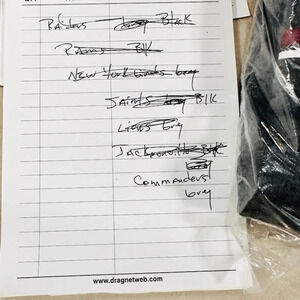 Raiders grey Black
Rams Blk
New York Giants grey
Saints grey Blk
Lions grey
Jacksonville Blk
grey
Commanders
grey
www.dragnetweb.com